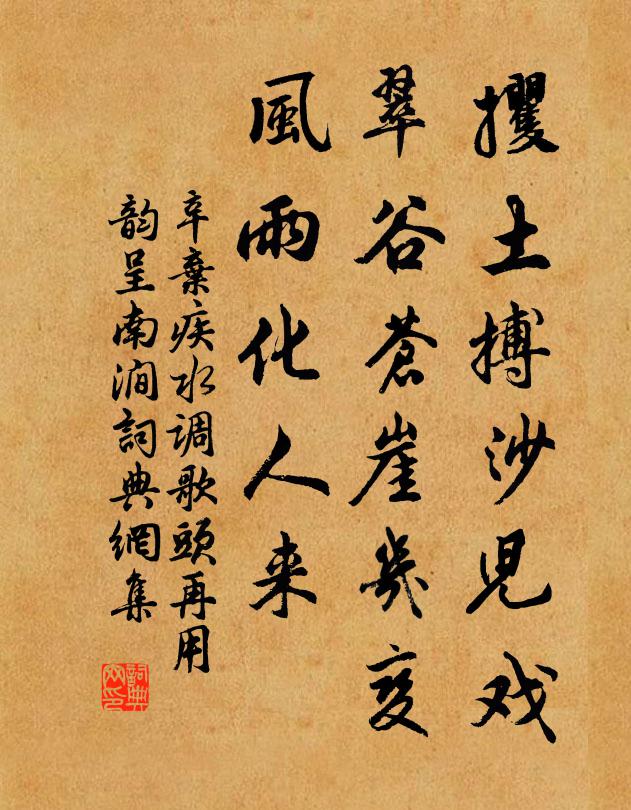 攫土搏沙兒戏
翠谷蒼崖幾变
風雨化人来
辛棄疾水调歌頭再用
韵呈南澗詞典網集
詞典网印